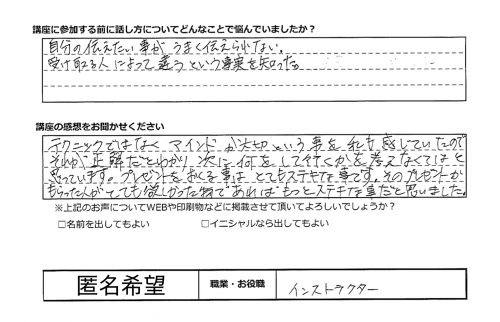 講座に参加する前に話し方についてどんなことで悩んでいましたか？
自分の伝えたい事が、うまく伝えられない。
受け取る人によって違うという事実を知った。
講座の感想をお聞かせください
テクニックではなく、マインドが大切という事を私も感じていたので
それが正解だとわかり、次に何をして行くかを考えなくてはと
思っています。プレゼントをおくる事は、とてもステキな事です。そのプレゼントが
もらった人がとても欲しかった物であれば、もっとステキな事だと思いました。
※上記のお声についてWEBや印刷物などに掲載させて頂いてよろしいでしょうか？
□名前を出してもよい □イニシャルなら出してもよい
匿名希望 職業・お役職 インストラクター